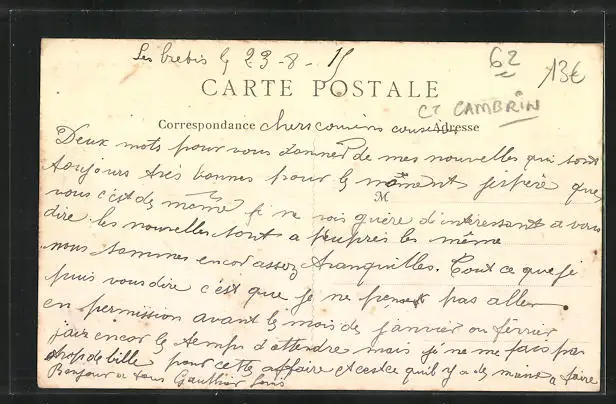 Les brebis le 23-8-15
62
13€
CARTE POSTALE
Ct CAMBRIN
Correspondance chers cousins cousines Adresse
Deux mots pour vous donner de mes nouvelles qui sont
toujours tres bonnes pour le moment j'espère que
M
vous c'est de même je ne vois guère d'intéressant a vous
dire les nouvelles sont a peuprès les même
nous sommes encor assez tranquilles. Tout ce que je
puis vous dire c'est que je ne pense pas aller
en permission avant le mois de janvier ou fevrier
jaiz encor le temps d'attendre mais je ne me fais pas
trop de bille pour cette affaire et cest ce qu'il y a de mieux a faire
Bonjour a tous Gauthier Louis